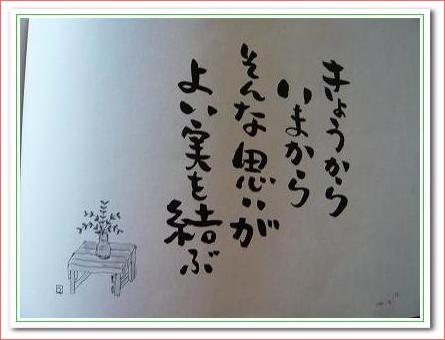 きょうから
いまから
そんな思いが
よい実を結ぶ